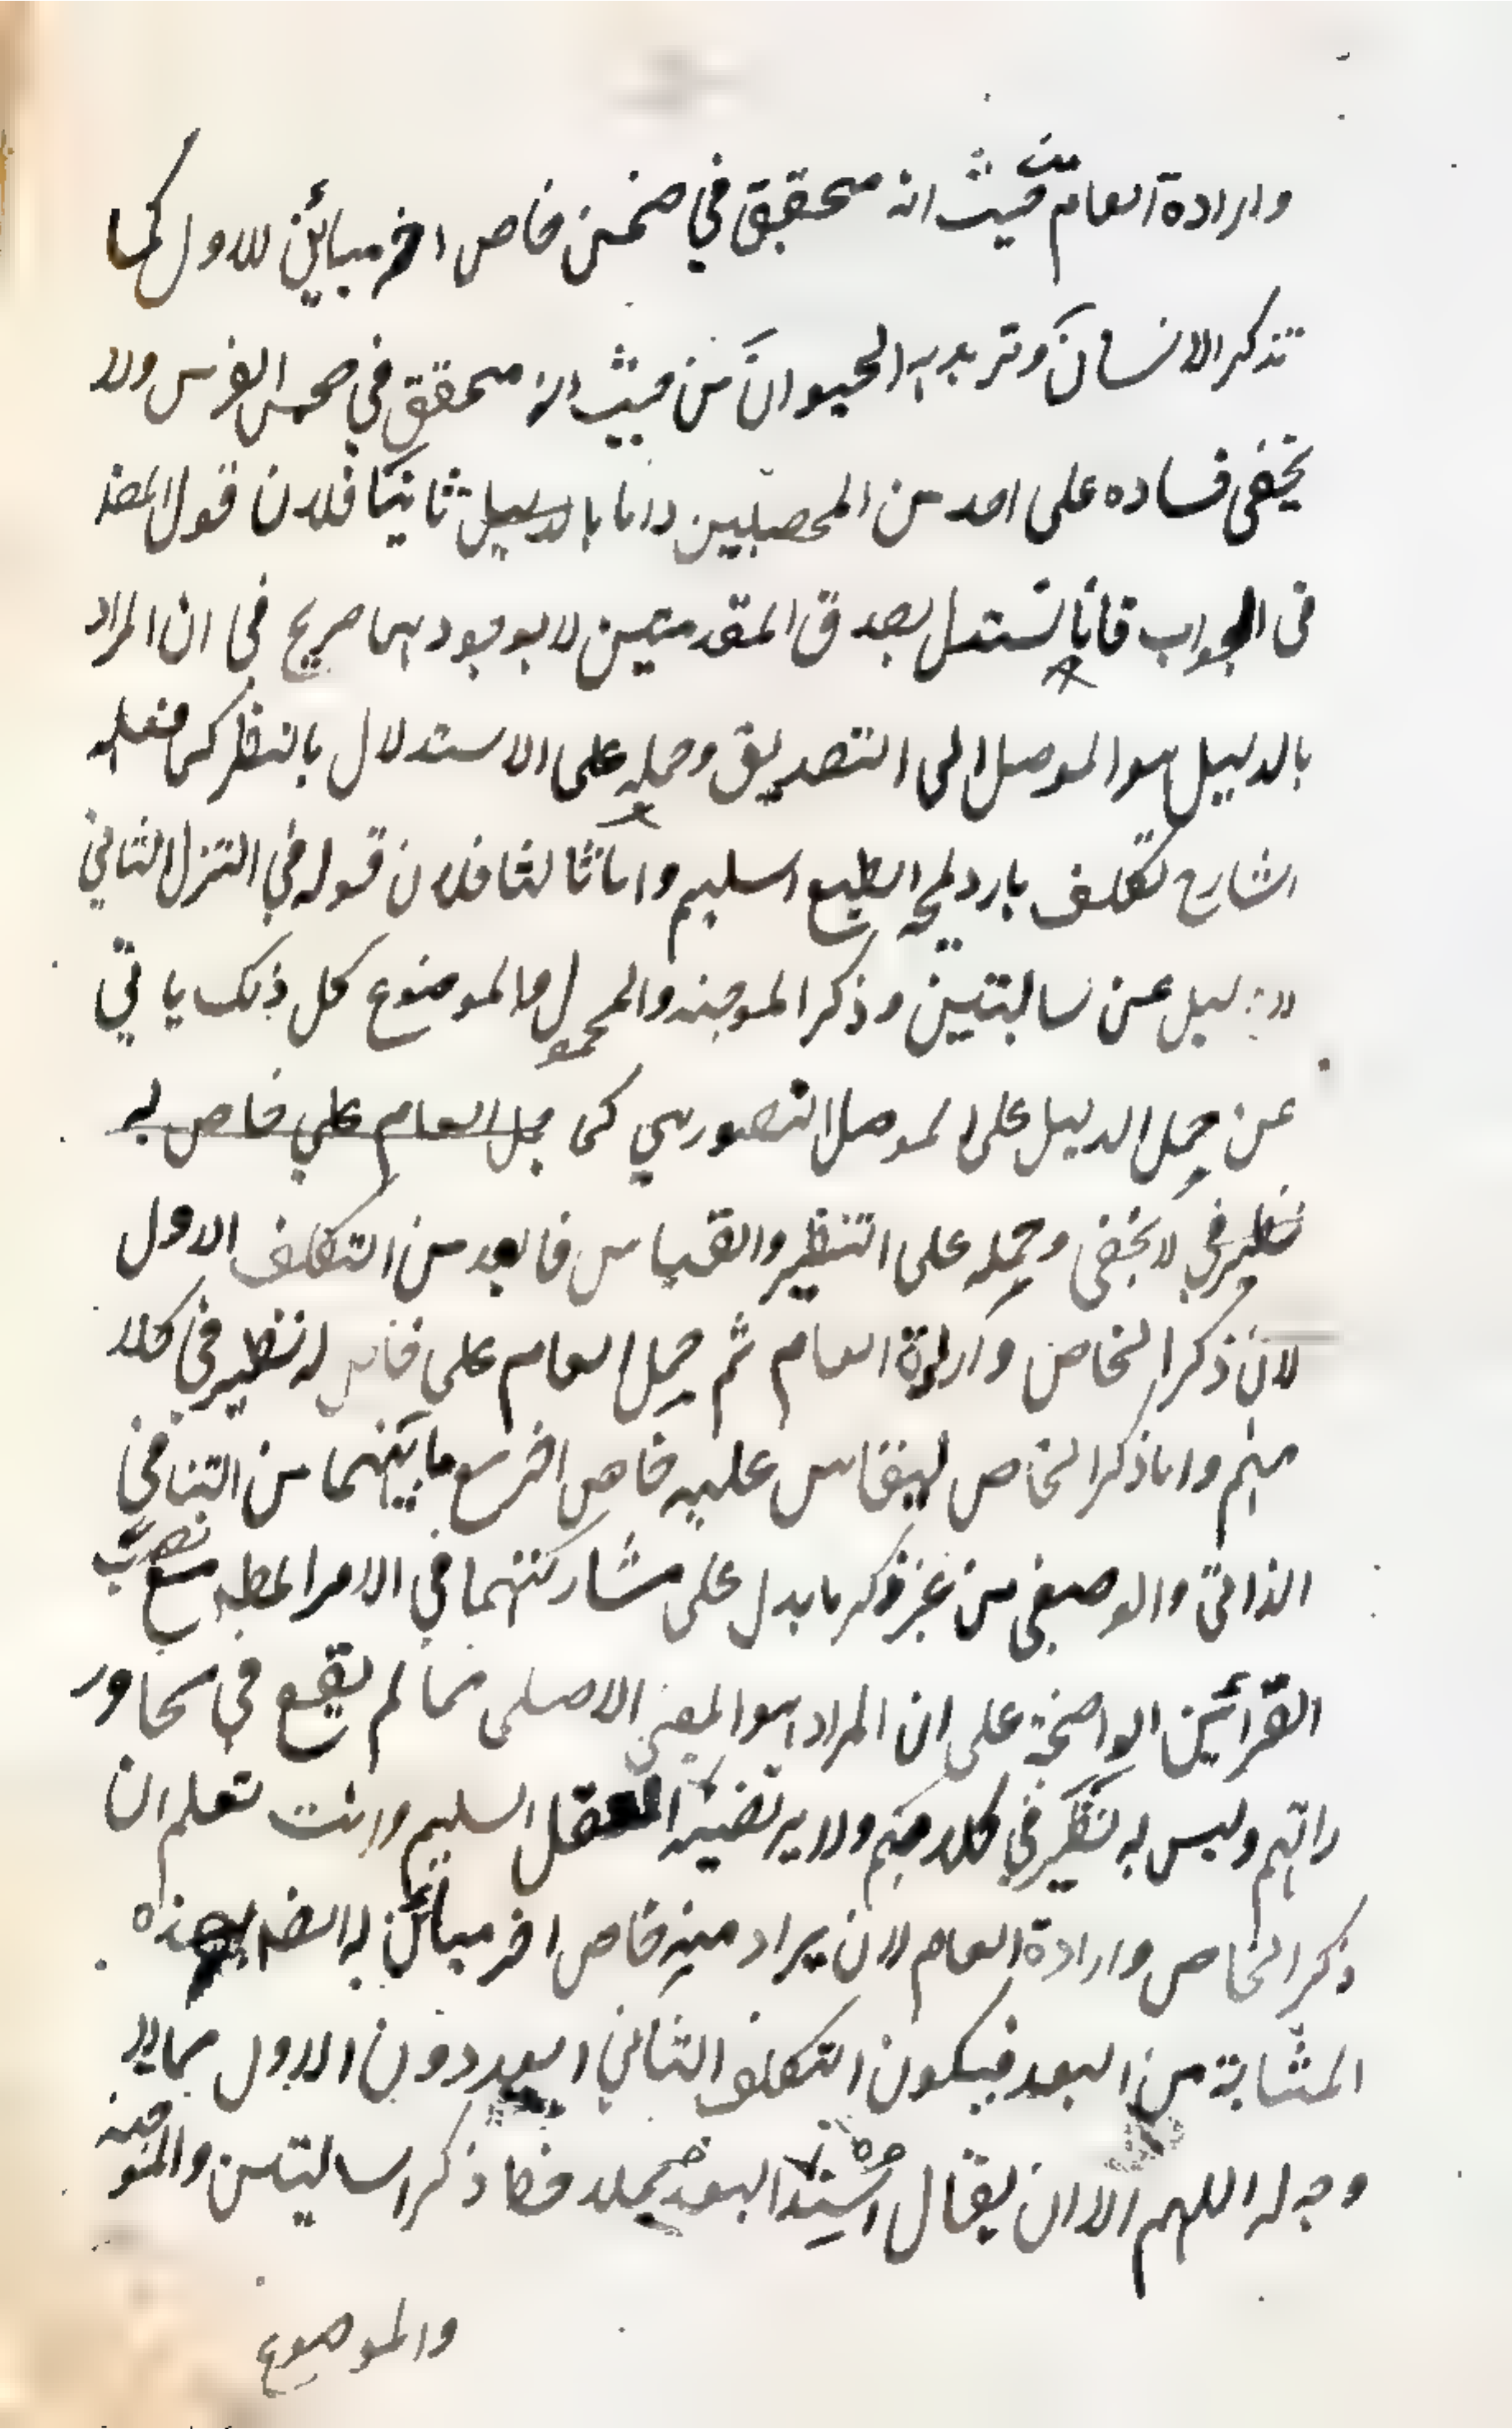 وارادة العام من حيث انه متحقق في ضمن خاص اخر مبائن للاول كما
تذكر الانسان وتريد به الحيوان من حيث انه متحقق في ضمن الفرس ولا
يخفى فساده على احد من المحصلين واما بالدليل ثانيا فلان قول المص
في الجواب فانا نستدل بصدق المقدمتين لا بوجودهما صريح في ان المراد
بالدليل هو الموصل الى التصديق وحمله على الاستدلال بالنظر كما فعله
الشارح تكلف بارد يمجه الطبع السليم واما ثالثا فلان قوله في التنزل الثاني
لا دليل عن سالبتين وذكر الموجبة والمحمول والموضوع كل ذلك يابى
عن حمل الدليل على الموصل التصوري كما حمل العام على خاص له
نظير في لا يخفى وحمله على التنظير والقياس فابعد من التكلف الاول
لان ذكر الخاص وارادة العام ثم حمل العام على خاص له نظير في كلا
مهم واما ذكر الخاص ليقاس عليه خاص اخر مع ما بينهما من التنافي
الذاتي والوصفي من غير ذكر ما يدل على مشاركتهما في الامر المط مع نصب
القرائن الواضحة على ان المراد هو المعنى الاصلي مما لم يقع في محاور
راتهم وليس له نظير في كلامهم ولا يرتضيه العقل السليم وانت تعلم ان
ذكر الخاص وارادة العام لان يراد منه خاص اخر مبائن له ايضا بهذه
المثابة من البعد فيكون التكلف الثاني ابعد دون الاول مما لا
وجه له اللهم الا ان يقال اشتد هذا البعد فكا ذكر السالبتين والموجبة
والموضوع